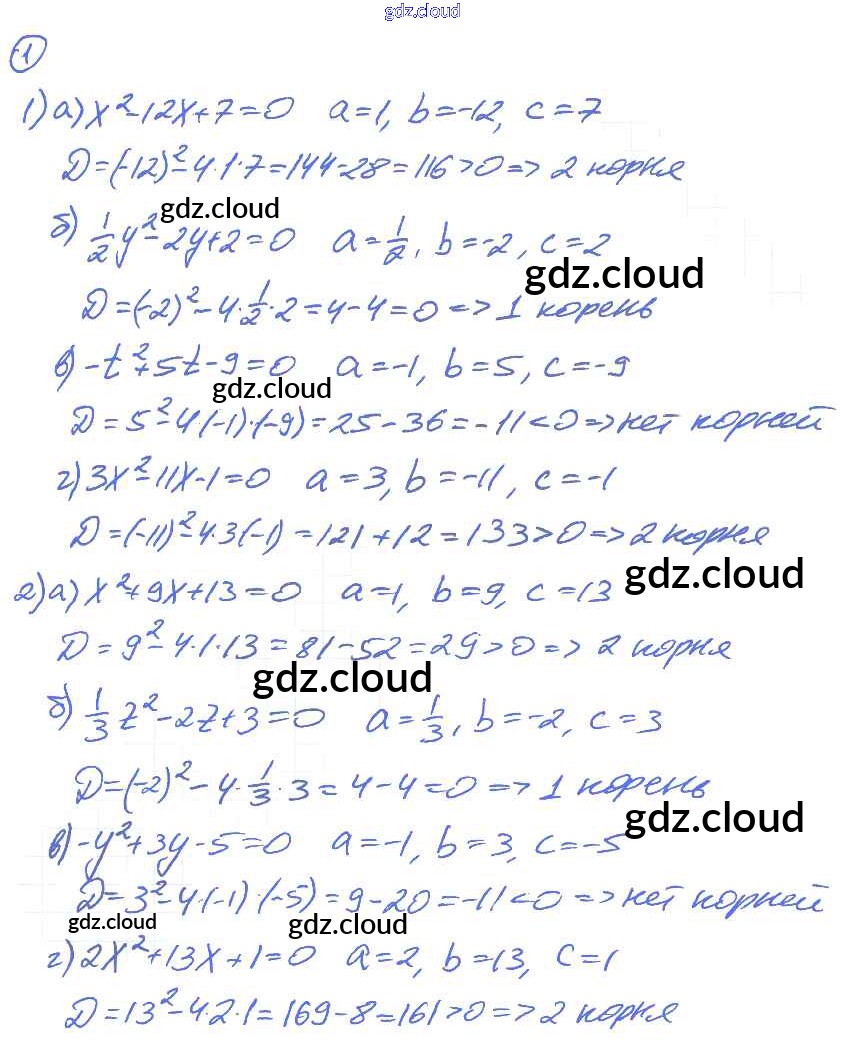 gdz.cloud
1
1) а) x²-12x+7=0 a=1, b=-12, c=7
D=(-12)²-4·1·7=144-28=116>0=>2 корня
gdz.cloud
б) 1/2y²-2y+2=0 a=1/2, b=-2, c=2
gdz.cloud
D=(-2)²-4·1/2·2=4-4=0=>1 корень
в) -t²+5t-9=0 a=-1, b=5, c=-9
gdz.cloud
D=5²-4(-1)·(-9)=25-36=-11<0=>нет корней
г) 3x²-11x-1=0 a=3, b=-11, c=-1
D=(-11)²-4·3(-1)=121+12=133>0=>2 корня
gdz.cloud
2) а) x²+9x+13=0 a=1, b=9, c=13
D=9²-4·1·13=81-52=29>0=>2 корня
gdz.cloud
б) 1/3z²-2z+3=0 a=1/3, b=-2, c=3
D=(-2)²-4·1/3·3=4-4=0=>1 корень
gdz.cloud
в) -y²+3y-5=0 a=-1, b=3, c=-5
D=3²-4·(-1)·(-5)=9-20=-11<0=>нет корней
gdz.cloud gdz.cloud
г) 2x²+13x+1=0 a=2, b=13, c=1
D=13²-4·2·1=169-8=161>0=>2 корня